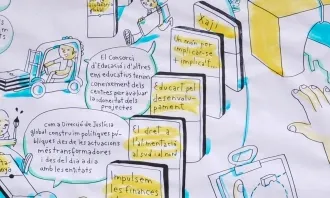 Xaji
Un món per
implicar-se
i implicar...
El Consorci
d'Educació i d'altres
ens educatius tenim
coneixement dels
centres per avaluar
la idoneïtat dels
projectes
Educar pel
desenvolu-
pament
Com a Direcció de Justícia
global construïm polítiques pú-
bliques des de les actuacions
més transformadores
i des del dia a dia
amb les entitats
El dret a
l'alimentació
al sud i al nord
Impulsem
les finances